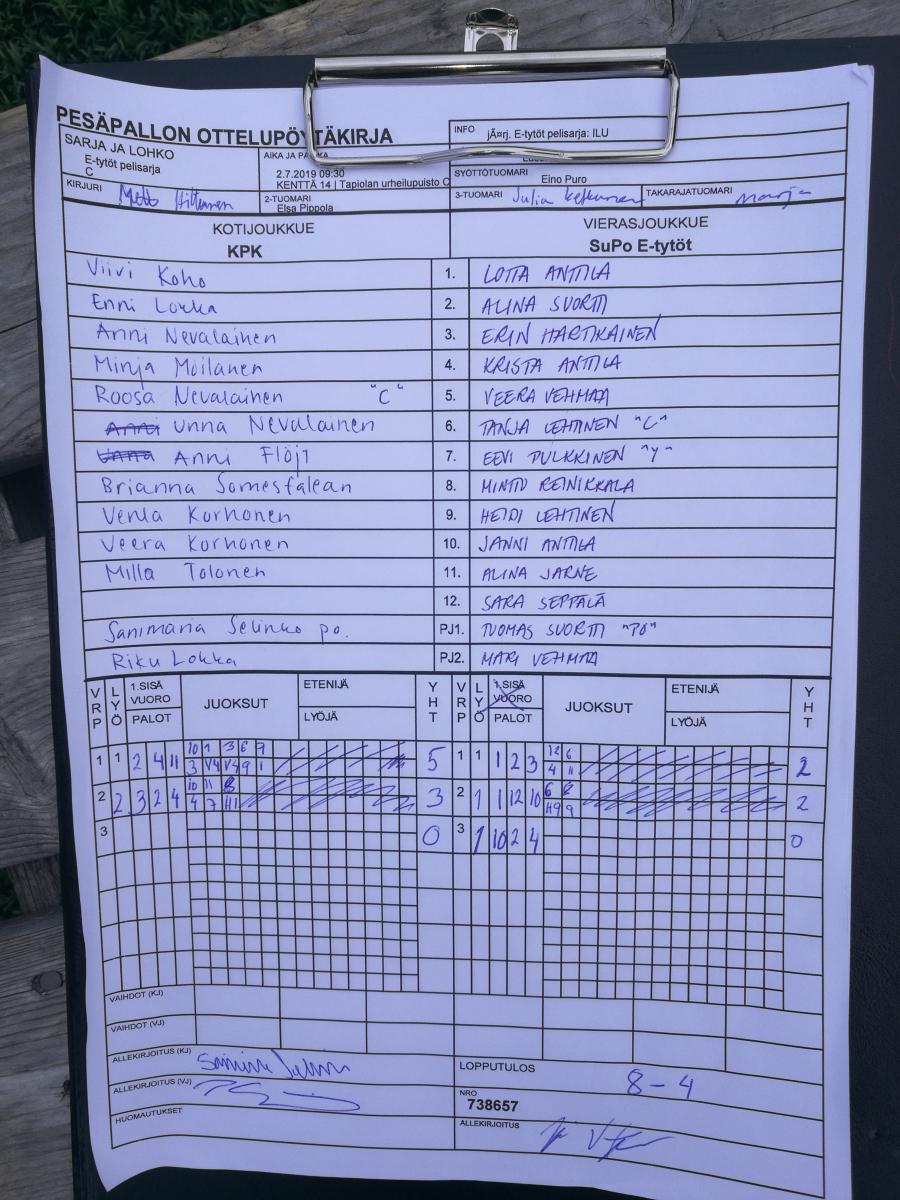 PESÄPALLON OTTELUPÖYTÄKIRJA
INFO jÃ¤rj. E-tytöt pelisarja: ILU
SARJA JA LOHKO
E-tytöt pelisarja
C
AIKA JA PAIKKA
2.7.2019 09:30
KENTTÄ 14 | Tapiolan urheilupuisto C
SYÖTTÖTUOMARI Eino Puro
KIRJURI
2-TUOMARI
Elsa Pippola
3-TUOMARI Julia
TAKARAJATUOMARI Marja
KOTIJOUKKUE
KPK
VIERASJOUKKUE
SuPo E-tytöt
Viivi Koho 1. LOTTA ANTTILA
Enni Lokka 2. ALINA SUORTTI
Anni Nevalainen 3. ERIN HARTIKAINEN
Minja Moilanen 4. KRISTA ANTTILA
Roosa Nevalainen "C" 5. VEERA VEHMAA
Anni Unna Nevalainen 6. TANJA LEHTINEN "C"
Unna Anni Flöjt 7. EEVI PULKKINEN "Y"
Brianna Somesfalean 8. MINTTU REINIKKALA
Venla Korhonen 9. HEIDI LEHTINEN
Veera Korhonen 10. JANNI ANTTILA
Milla Tolonen 11. ALINA JARNE
12. SARA SEPPÄLÄ
Sanimaria Selinko po. PJ1. TUOMAS SUORTTI "PO"
Riku Lokka PJ2. MARI VEHMAA
VRP LYÖ 1.SISÄ VUORO PALOT JUOKSUT ETENIJÄ LYÖJÄ YHT VRP LYÖ 1.SISÄ VUORO PALOT JUOKSUT ETENIJÄ LYÖJÄ YHT
1 1 2 4 11 5 1 1 1 2 3 2
2 2 3 2 4 3 2 1 1 12 10 2
3 0 3 1 10 2 4 0
VAIHDOT (KJ)
VAIHDOT (VJ)
ALLEKIRJOITUS (KJ)
LOPPUTULOS 8-4
ALLEKIRJOITUS (VJ)
NRO
738657
HUOMAUTUKSET
ALLEKIRJOITUS